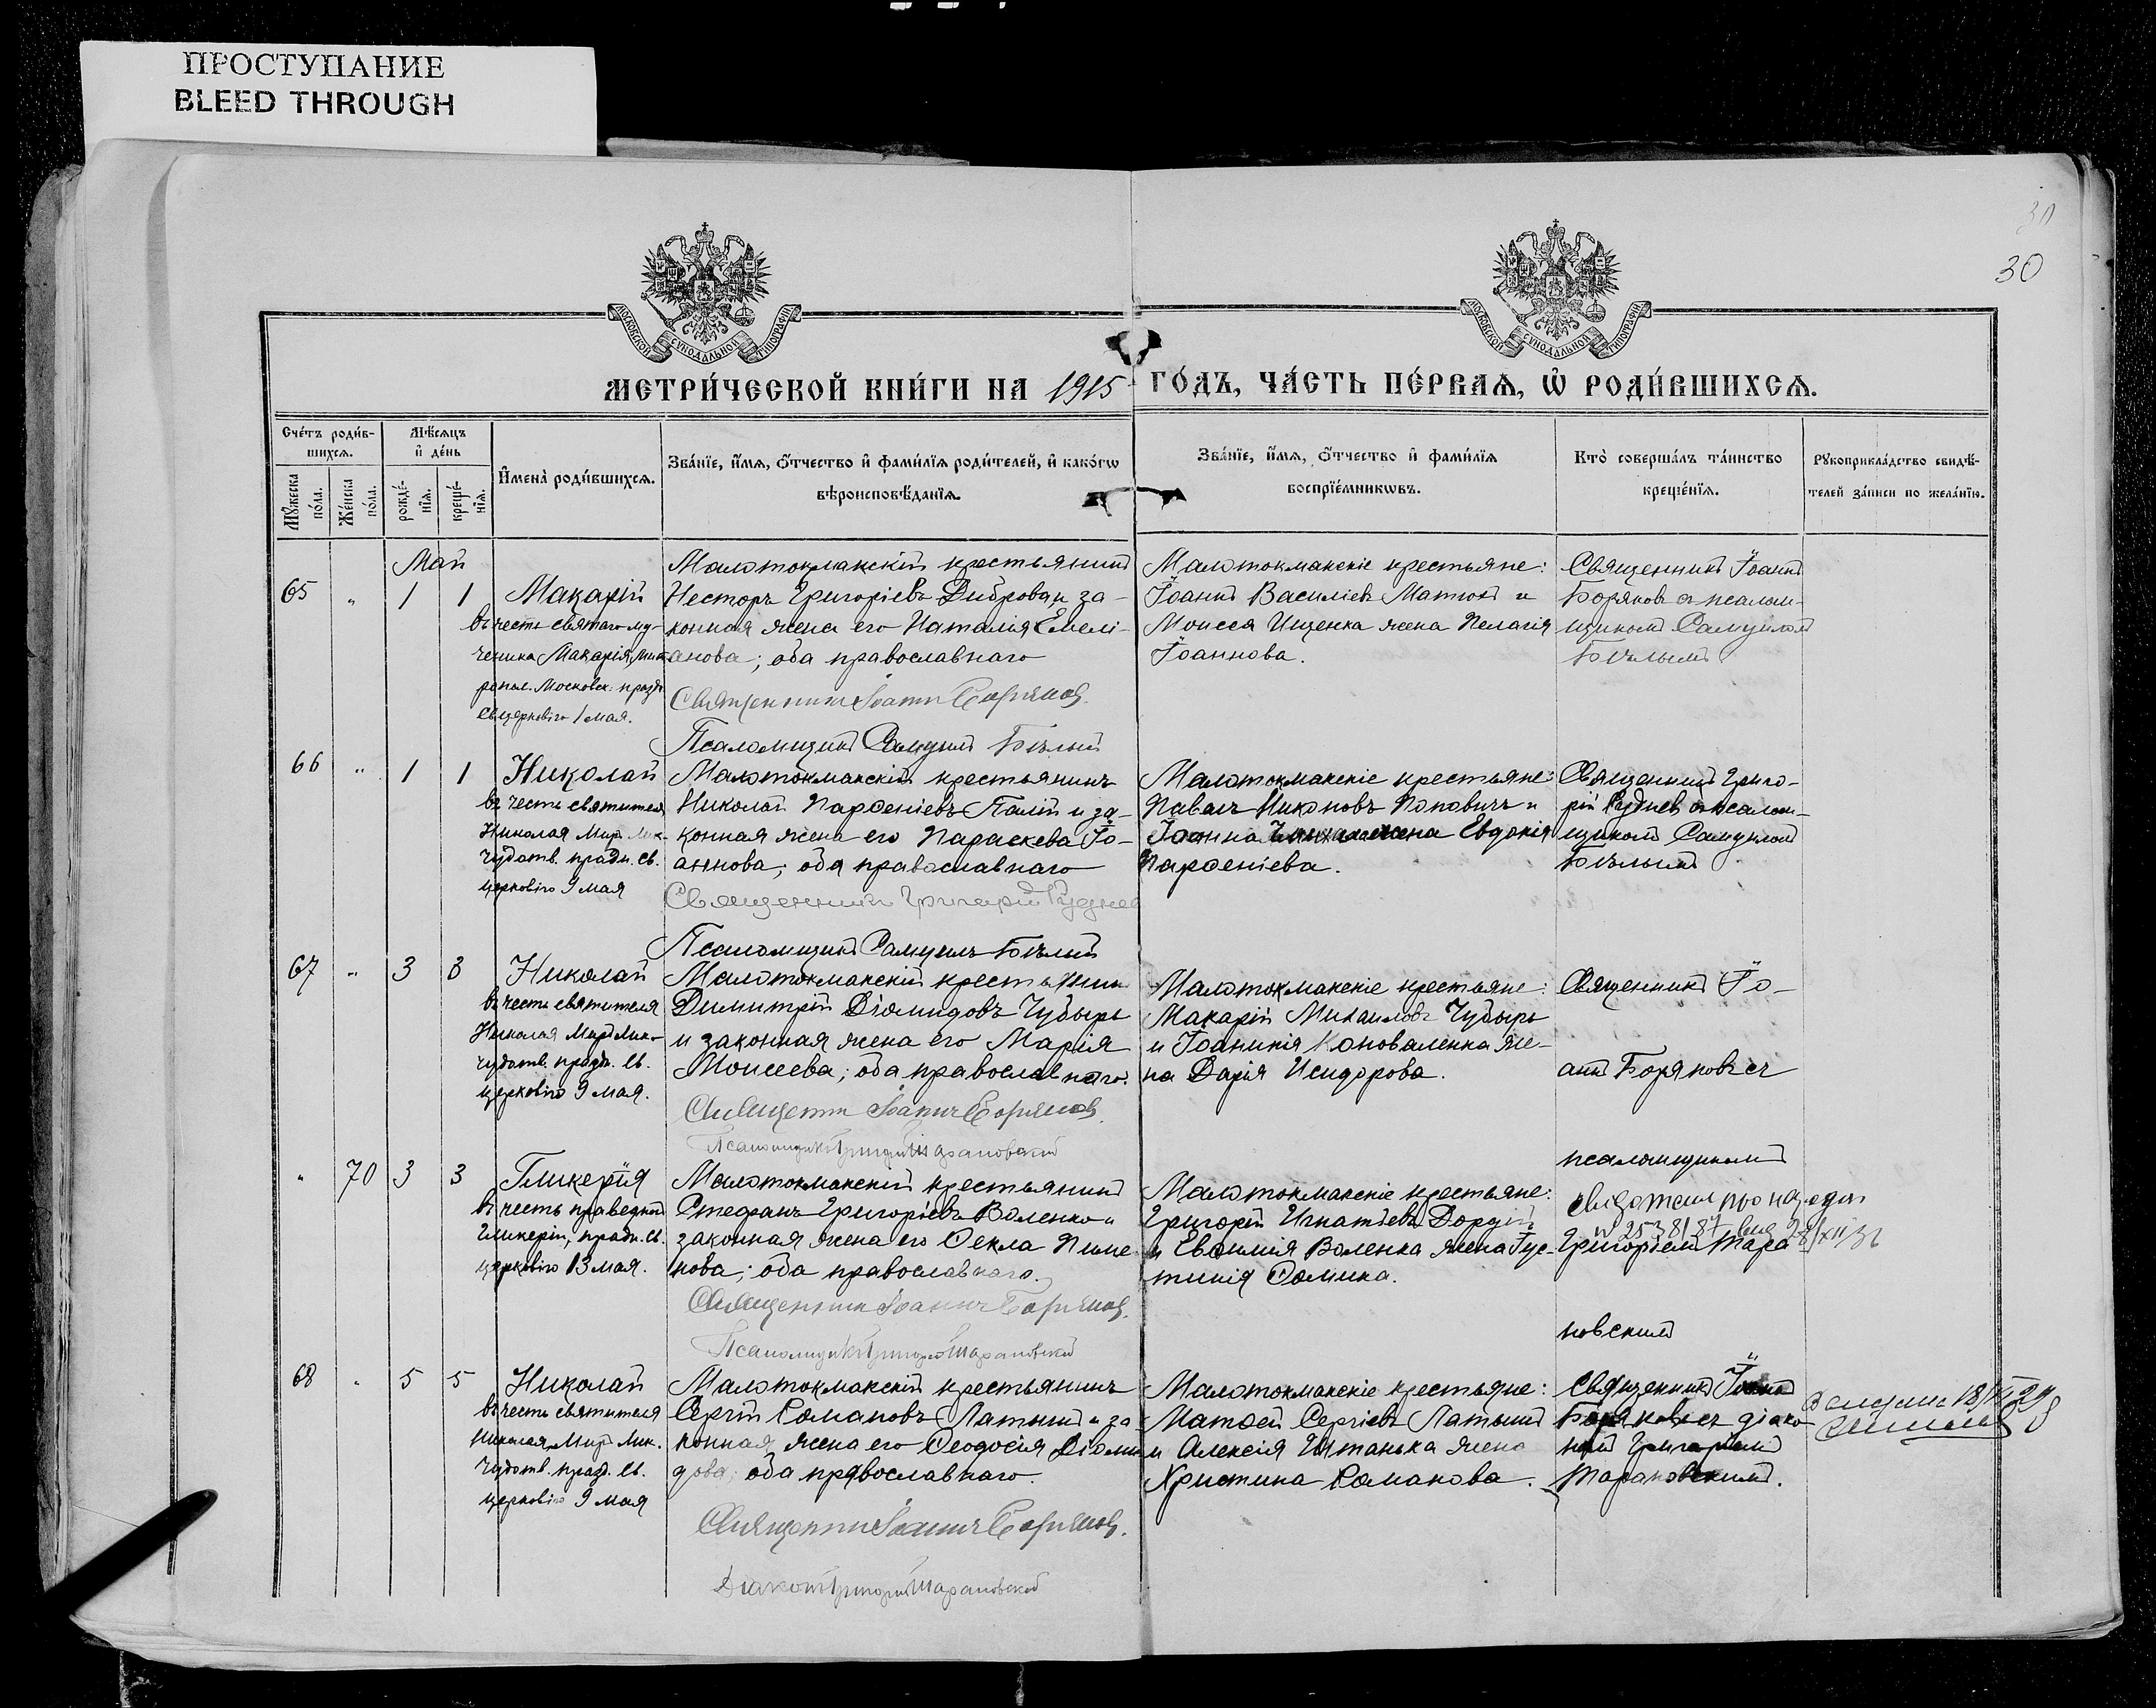 ПРОСТУПАНИЕ
BLEED THROUGH
30
30
МОСКОВСКОЙ СУНОДАЛЬНОЙ ТИПОГРАФІИ
МОСКОВСКОЙ СУНОДАЛЬНОЙ ТИПОГРАФІИ
МЕТРИ́ЧЕСКОЙ КНИ́ГИ НА 1915 ГО́ДЪ, ЧА́СТЬ ПЕ́РВАѦ, Ѡ҆ РОДИ́ВШИХСѦ.
Сче́тъ роди́в-
шихсѧ.
Мѣ́сѧцъ
и҆ де́нь
Мꙋ́жеска
по́ла.
Же́нска
по́ла.
рожде́-
нїѧ.
креще́-
нїѧ.
И҆мена̀ роди́вшихсѧ.
Зва́нїе, и҆́мѧ, о҆́тчество и҆ фами́лїѧ роди́телей, и҆ како́гѡ
вѣроисповѣ́данїѧ.
Зва́нїе, и҆́мѧ, о҆́тчество и҆ фами́лїѧ
воспрїе́мникѡвъ.
Кто̀ соверша́лъ та́инство
креще́нїѧ.
Рꙋкоприкла́дство свидѣ́-
телей за́писи по жела́нїю.
Май
65 " 1 1
Макарій
въ честь святаго му-
ченика Макарія, мит
ропол. Московск. праздн.
св. церковію 1 мая.
Малотокмакскій крестьянинъ
Несторъ Григоріевъ Диброва и за-
конная жена его Наталія Емелі-
анова; оба православнаго
Священникъ Іоаннъ Боряковъ.
Псаломщикъ Самуилъ Бѣлый
Малотокмакскіе крестьяне:
Іоаннъ Василіевъ и
Моисея Ищенка жена Пелагія
Іоаннова.
Священникъ Іоаннъ
Боряковъ съ псалом-
щикомъ Самуиломъ
Бѣлымъ
66 " 1 1
Николай
въ честь святителя
Николая Мир. Лик.
чудотв. праздн. св.
церковію 9 мая
Малотокмакскій крестьянинъ
Николай Парѳеніевъ Палій и за-
конная жена его Параскева Іо-
аннова; оба православнаго
Священникъ Григорій Рудневъ
Псаломщикъ Самуилъ Бѣлый
Малотокмакскіе крестьяне:
Павелъ Никоновъ Поповичъ и
Іоанна жена Евдокія
Парѳеніева.
Священникъ Григо-
рій Рудневъ съ псалом-
щикомъ Самуиломъ
Бѣлымъ
67 " 3 3
Николай
въ честь святителя
Николая Мир Лик.
чудотв. праздн. св.
церковію 9 мая.
Малотокмакскій крестьянинъ
Димитрій Діомидовъ Чубырь
и законная жена его Марія
Моисеева; оба православнаго.
Священникъ Іоаннъ Боряковъ.
Псаломщикъ Григорій Тарановскій
Малотокмакскіе крестьяне:
Макарій Михаиловъ Чубырь
и Іоанникія Коноваленка же-
на Дарія Исидорова.
Священникъ Іо-
аннъ Боряковъ съ
псаломщикомъ
Григоріемъ Тара-
новскимъ
" 70 3 3
Гликерія
въ честь праведной
Гликеріи, праздн. св.
церковію 13 мая.
Малотокмакскій крестьянинъ
Стефанъ Григоріевъ Воленко и
законная жена его Ѳекла Пиме-
нова; оба православнаго.
Священникъ Іоаннъ Боряковъ.
Псаломщикъ Григорій Тарановскій
Малотокмакскіе крестьяне:
Григорій Игнатіевъ Дордій
и Евѳимія Воленка жена Іус-
тинія Ѳомина.
№ 253 81 87 28/XII 31
68 " 5 5
Николай
въ честь святителя
Николая Мир. Лик.
чудотв. празд. св.
церковію 9 мая
Малотокмакскій крестьянинъ
Сергій Романовъ Латышъ и за
конная жена его Ѳеодосія Діоми
дова; оба православнаго.
Священникъ Іоаннъ Боряковъ.
Діаконъ Григорій Тарановскій
Малотокмакскіе крестьяне:
Матѳей Сергіевъ Латышъ
и Алексія Штанька жена
Христина Романова.
Священникъ Іоаннъ
Боряковъ съ діако-
номъ Григоріемъ
Тарановскимъ.